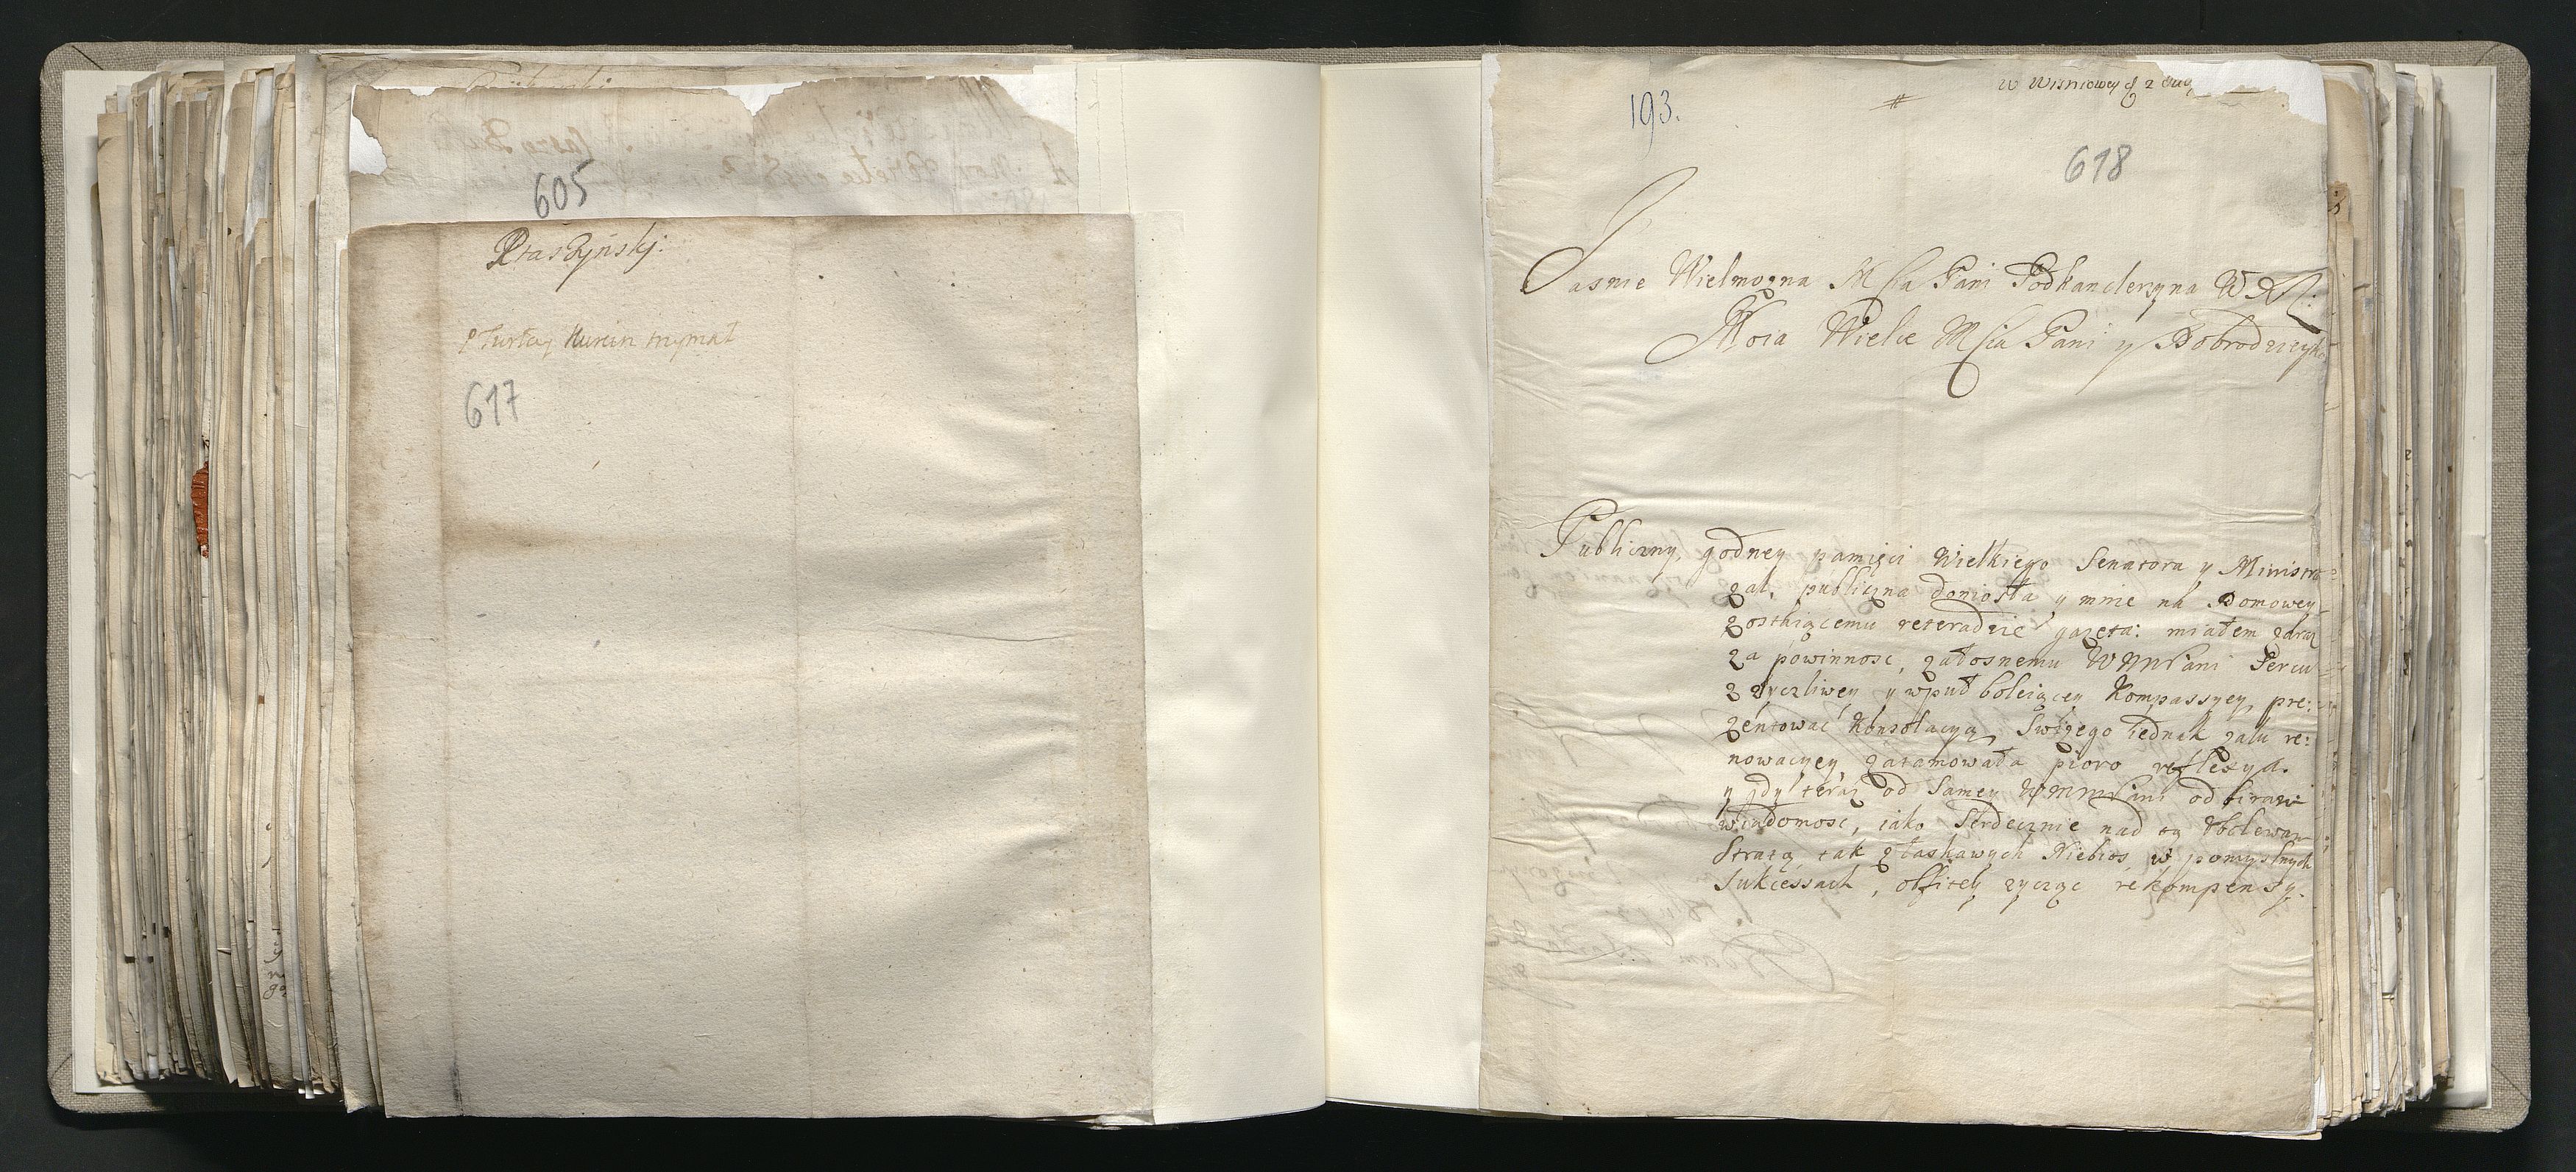 605
Ptaszyński:
617
193.
w Wisniowey d 2 Aug
618
Jasnie Wielmozna Mscia Pani Podkanclerzyna W X L:
Moia Wielce Mscia Pani y Dobrodzieyko
Publiczny, godney pamięci Wielkiego Senatora y Ministra
zal, publiczna doniosła y mnie na Domowey
zostaiącemu reteradzie gazeta: miałem zaraz
za powinnosc, załosnemu WMMPani Sercu
z zyczliwey y wpuł boleiącey Kompassyey, pre:
zentować Konsolacyą, Swiezego iednak zalu re:
nowacyey zatamowała pioro reflexya.
y gdy teraz od Samey WMMPani odbiram
wiadomosc, iako Serdecznie nad tą ubolewam
Stratą, tak z łaskawych Niebios, w pomyslnych
Sukcessach, obfitey zycząc rekompensy.